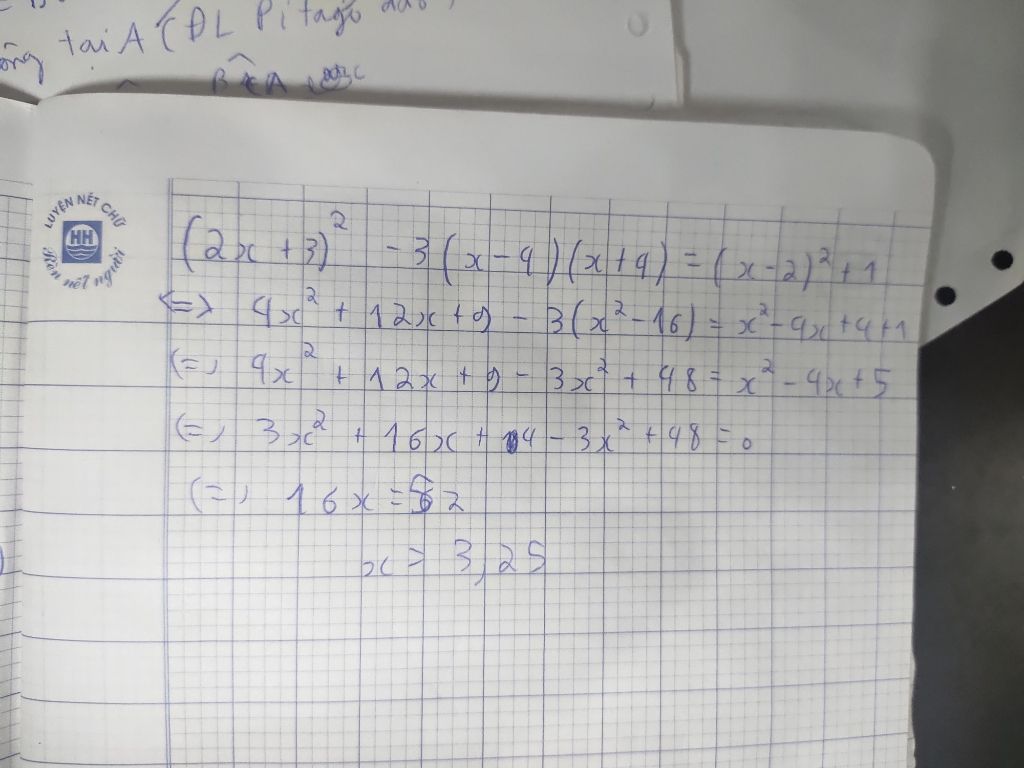 tại A (ĐL Pitago đảo)
LUYỆN NÉT CHỮ
HH
Rèn nết người
(2x + 3)² - 3(x - 4)(x + 4) = (x - 2)² + 1
<=> 4x² + 12x + 9 - 3(x² - 16) = x² - 4x + 4 + 1
(=) 4x² + 12x + 9 - 3x² + 48 = x² - 4x + 5
(=) 3x² + 16x + 4 - 3x² + 48 = 0
(=) 16x = 52
x = 3,25